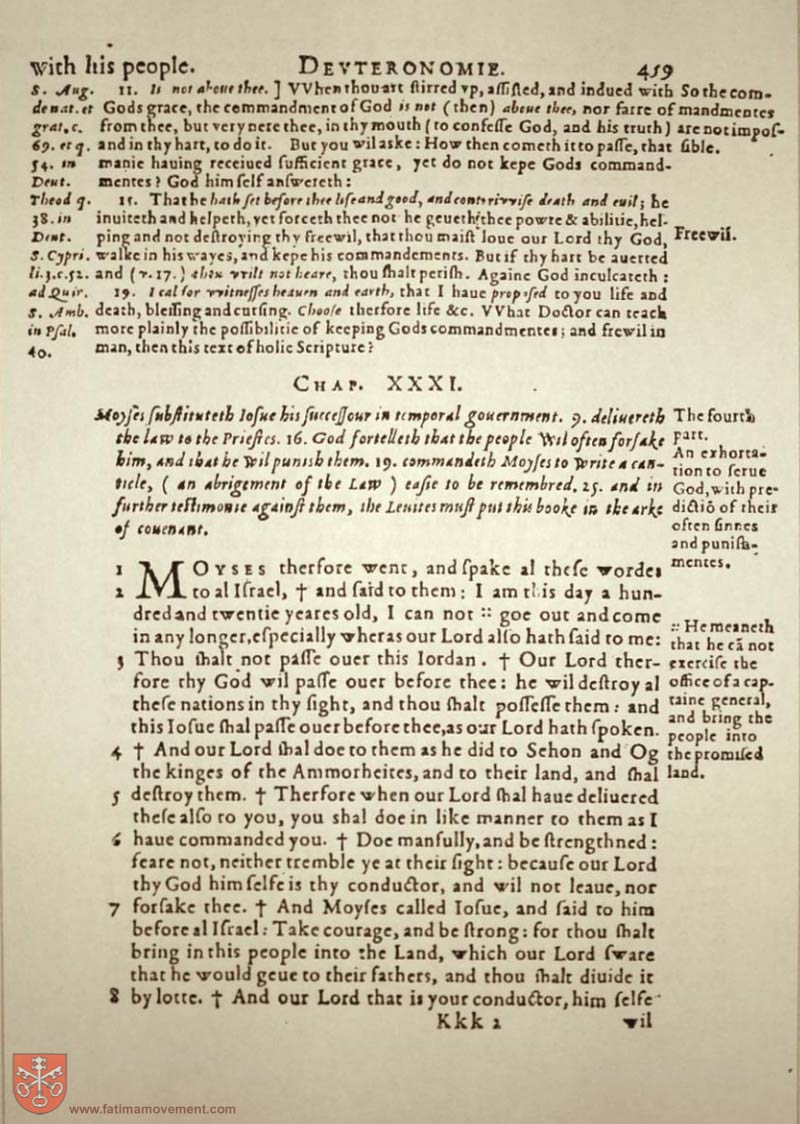 with his people. DEVTERONOMIE. 459
S. Aug.
de nat. et
grat. c.
69. et q.
54. in
Deut.
Theod q.
38. in
Deut.
S. Cypri.
li. 3. c. 52.
ad Quir.
S. Amb.
in Psal.
40.
11. Is not aboue thee. ] VVhen thou art ſtirred vp, aſſiſted, and indued with
Gods grace, the commandment of God is not (then) aboue thee, nor farre of
from thee, but very nere thee, in thy mouth (to confeſſe God, and his truth)
and in thy hart, to do it. But you wil aske: How then cometh it to paſſe, that
manie hauing receiued ſufficient grace, yet do not kepe Gods command-
mentes? God himſelf anſwereth:
15. That he hath ſet before thee life and good, and contrivviſe death and euil; he
inuiteth and helpeth, yet forceth thee not he geueth thee powre & abilitie, hel-
ping and not deſtroying thy freewil, that thou maiſt loue our Lord thy God,
walke in his wayes, and kepe his commandements. But if thy hart be auerted
and (v. 17.) thou vvilt not heare, thou ſhalt periſh. Againe God inculcateth:
19. I cal for vvitneſſes heauen and earth, that I haue propoſed to you life and
death, bleſſing and curſing. Chooſe therfore life &c. VVhat Doctor can teach
more plainly the poſſibilitie of keeping Gods commandmentes; and frewil in
man, then this text of holie Scripture?
So the com-
mandmentes
are not impoſ-
ſible.
Freewil.
CHAP. XXXI.
Moyſes ſubſtituteth Ioſue his ſucceſſour in temporal gouernment. 9. deliuereth
the law to the Prieſtes. 16. God fortelleth that the people wil often forſake
him, and that he wil punish them. 19. commandeth Moyſes to write a can-
ticle, ( an abrigement of the Law ) eaſie to be remembred. 25. and in
further teſtimonie againſt them, the Leuites muſt put this booke in the arke
of couenant.
The fourth
part.
An exhorta-
tion to ſerue
God, with pre-
dictiō of their
often ſinnes
and puniſh-
mentes.
1 MOYSES therfore went, and ſpake al theſe wordes
2 to al Iſrael, † and ſaid to them: I am this day a hun-
dred and twentie yeares old, I can not :: goe out and come
in any longer, eſpecially wheras our Lord alſo hath ſaid to me:
3 Thou ſhalt not paſſe ouer this Iordan. † Our Lord ther-
fore thy God wil paſſe ouer before thee: he wil deſtroy al
theſe nations in thy ſight, and thou ſhalt poſſeſſe them: and
this Ioſue ſhal paſſe ouer before thee, as our Lord hath ſpoken.
4 † And our Lord ſhal doe to them as he did to Sehon and Og
the kinges of the Ammorheites, and to their land, and ſhal
5 deſtroy them. † Therfore when our Lord ſhal haue deliuered
theſe alſo to you, you shal doe in like manner to them as I
6 haue commanded you. † Doe manfully, and be ſtrengthned:
feare not, neither tremble ye at their ſight: becauſe our Lord
thy God him ſelfe is thy conductor, and wil not leaue, nor
7 forſake thee. † And Moyſes called Ioſue, and ſaid to him
before al Iſrael: Take courage, and be ſtrong: for thou ſhalt
bring in this people into the Land, which our Lord ſware
that he would geue to their fathers, and thou ſhalt diuide it
8 by lotte. † And our Lord that is your conductor, him ſelfe
:: He meaneth
that he cā not
exerciſe the
office of a cap-
taine general,
and bring the
people into
the promiſed
land.
Kkk 2 wil
www.fatimamovement.com